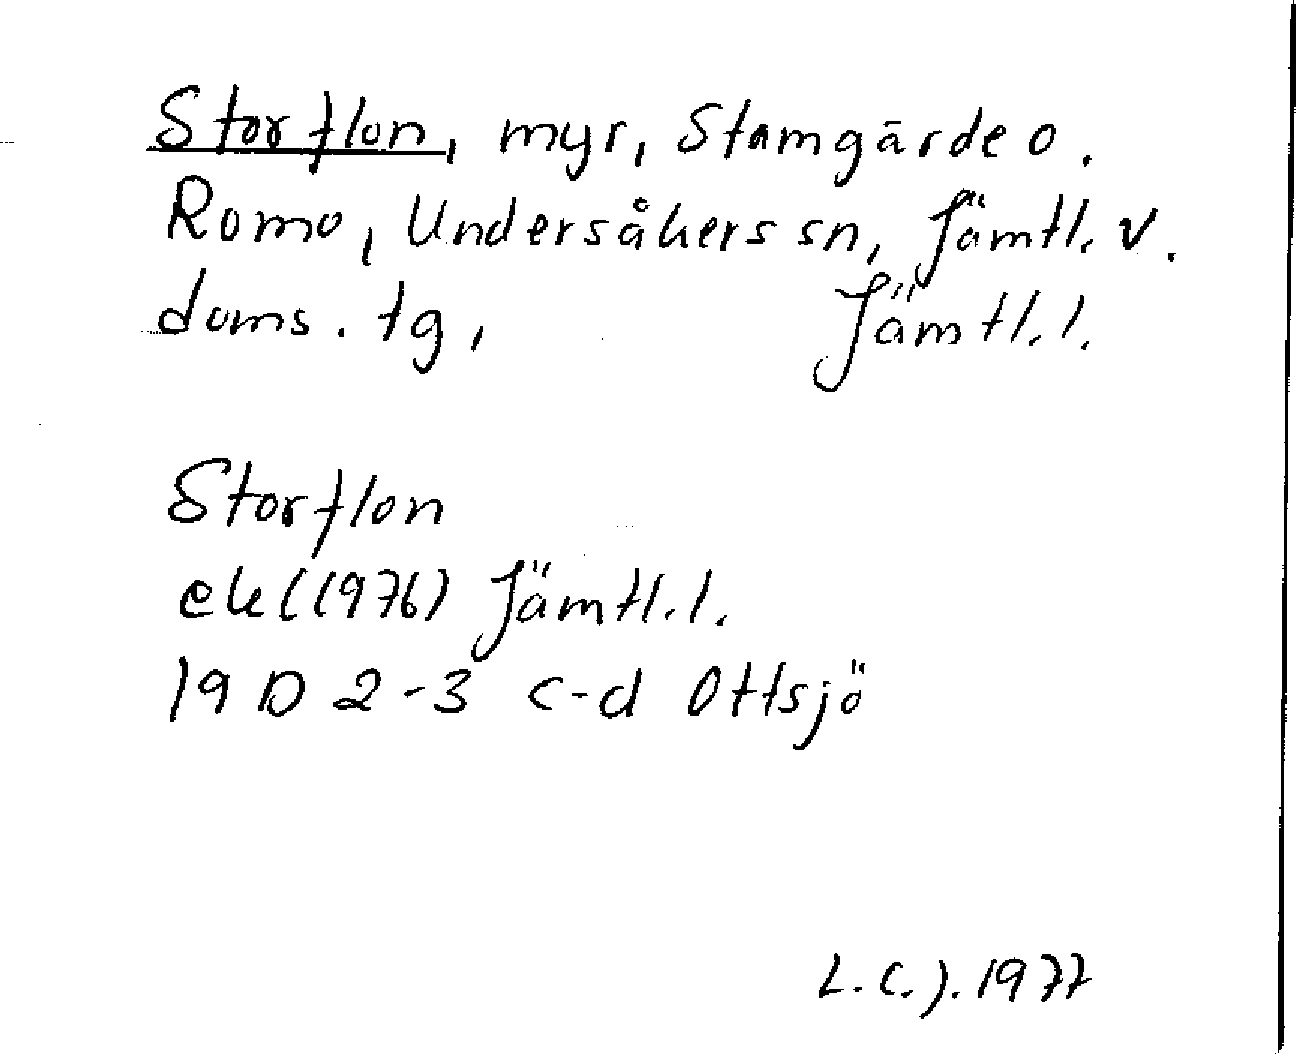 Storflon, myr, Stamgärde o.
Romo, Undersåkers sn, Jämtl. v.
doms. tg, Jämtl. l.
Storflon
ek (1976) Jämtl. l.
19 D 2-3 c-d Ottsjö
L.C.J. 1977